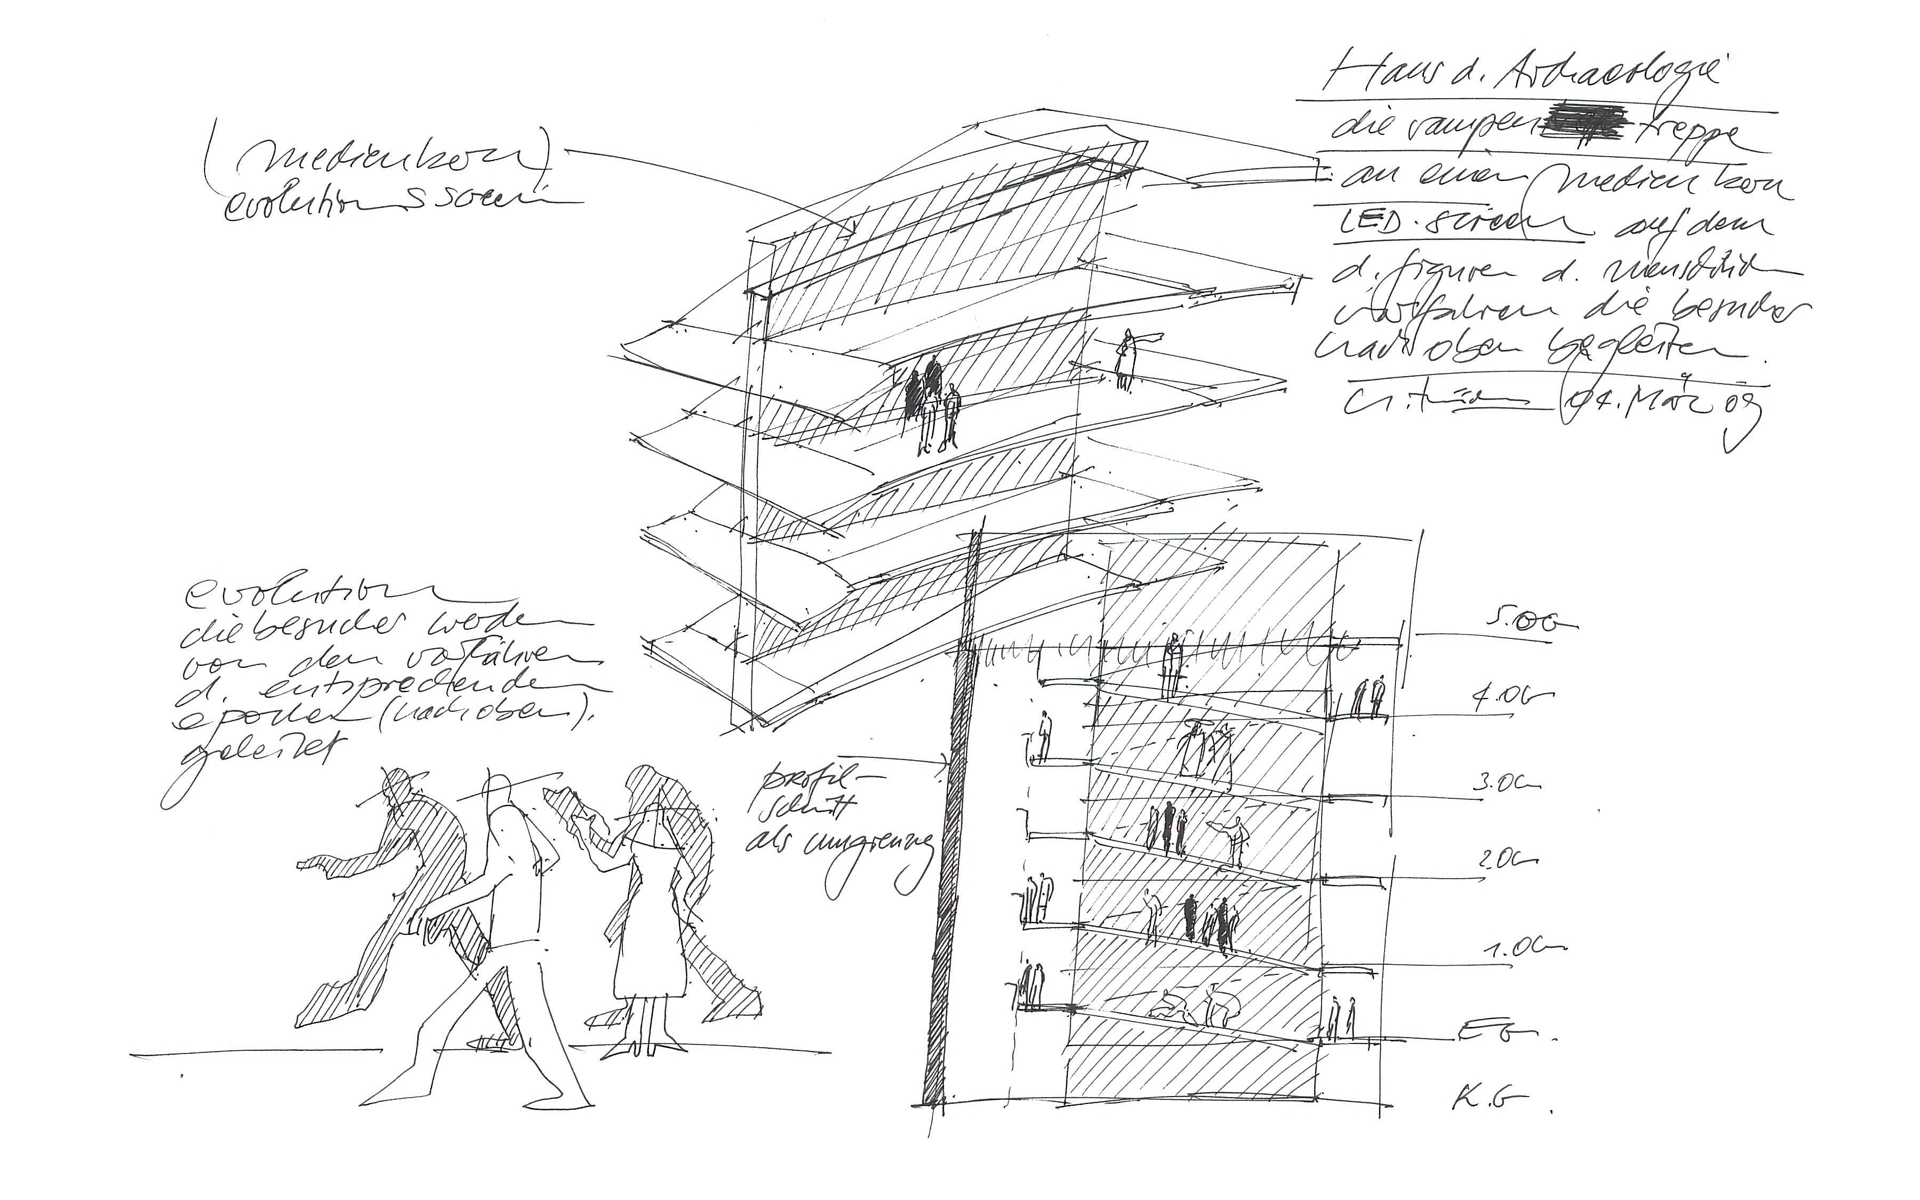 (medienkern)
evolutionsscreen
Haus d. Archaeologie
die rampen treppe
an einen medienkern
LED-screen auf dem
d. figuren d. menschlichen
vorfahren die besucher
nach oben begleiten.
04. März 09
evolution
die besucher werden
von den vorfahren
d. entsprechenden
epochen (nach oben).
geleitet
profil-
schnitt
als umgrenzung
5.OG
4.OG
3.OG
2.OG
1.OG
EG.
K.G.